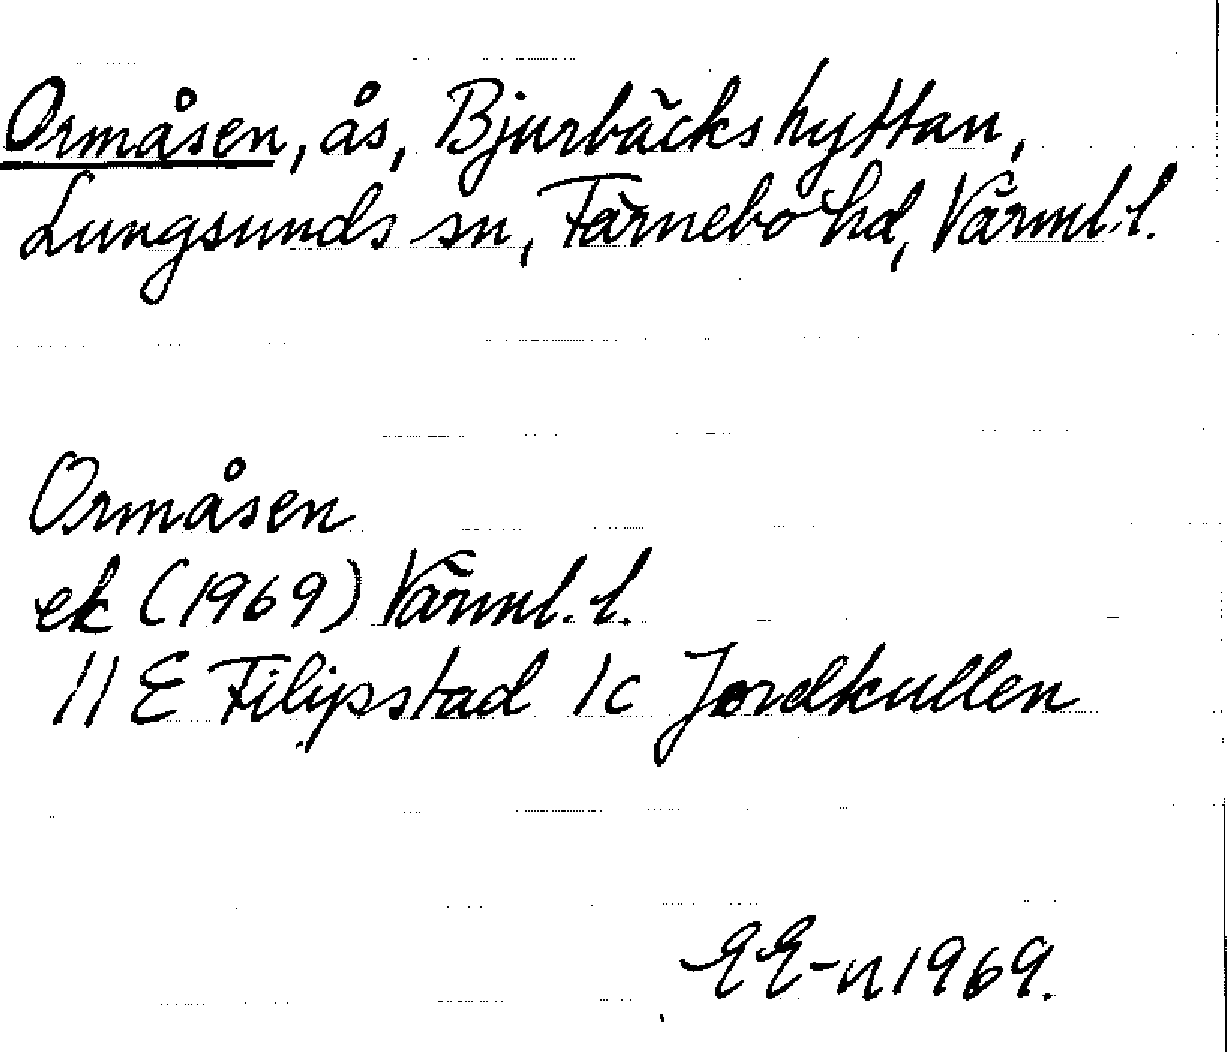 Ormåsen, ås, Bjurbäckshyttan,
Lungsunds sn, Färnebo hd, Värml.l.
Ormåsen
ek (1969) Värml.l.
11 E Filipstad 1c Jordkullen
EE-n 1969.